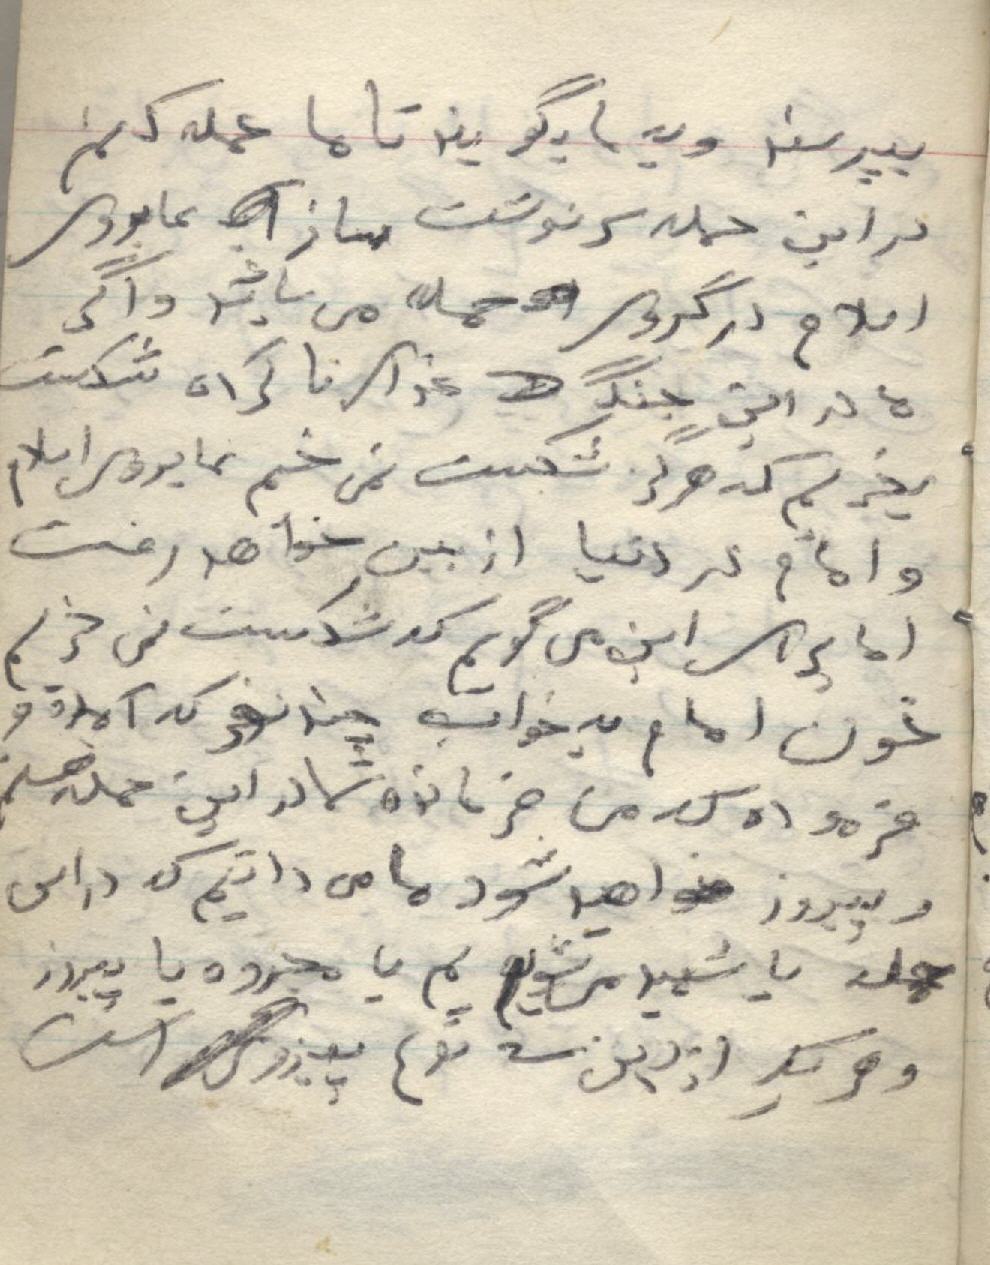 بپرسند و به ما بگویند تا ما حمله کنیم
در این حمله سرنوشت ساز نابودی
اسلام در گروی حمله می باشد و اگر
ما در این جنگ خدای نا کراه شکست
بخریم که هرگز شکست نمی خریم نابودی اسلام
و امام در دنیا از بین خواهد رفت
اما برای این می گویم که شکست نمی خریم
چون امام به خواب چند نفر که آمده و
فرموده که من فرمانده شما در این حمله هستم
و پیروز خواهید شود ما می دانیم که در این
حمله یا شهید می شویم یا مجروه یا پیروز
و هر یک از این سه نوع پیروزی است